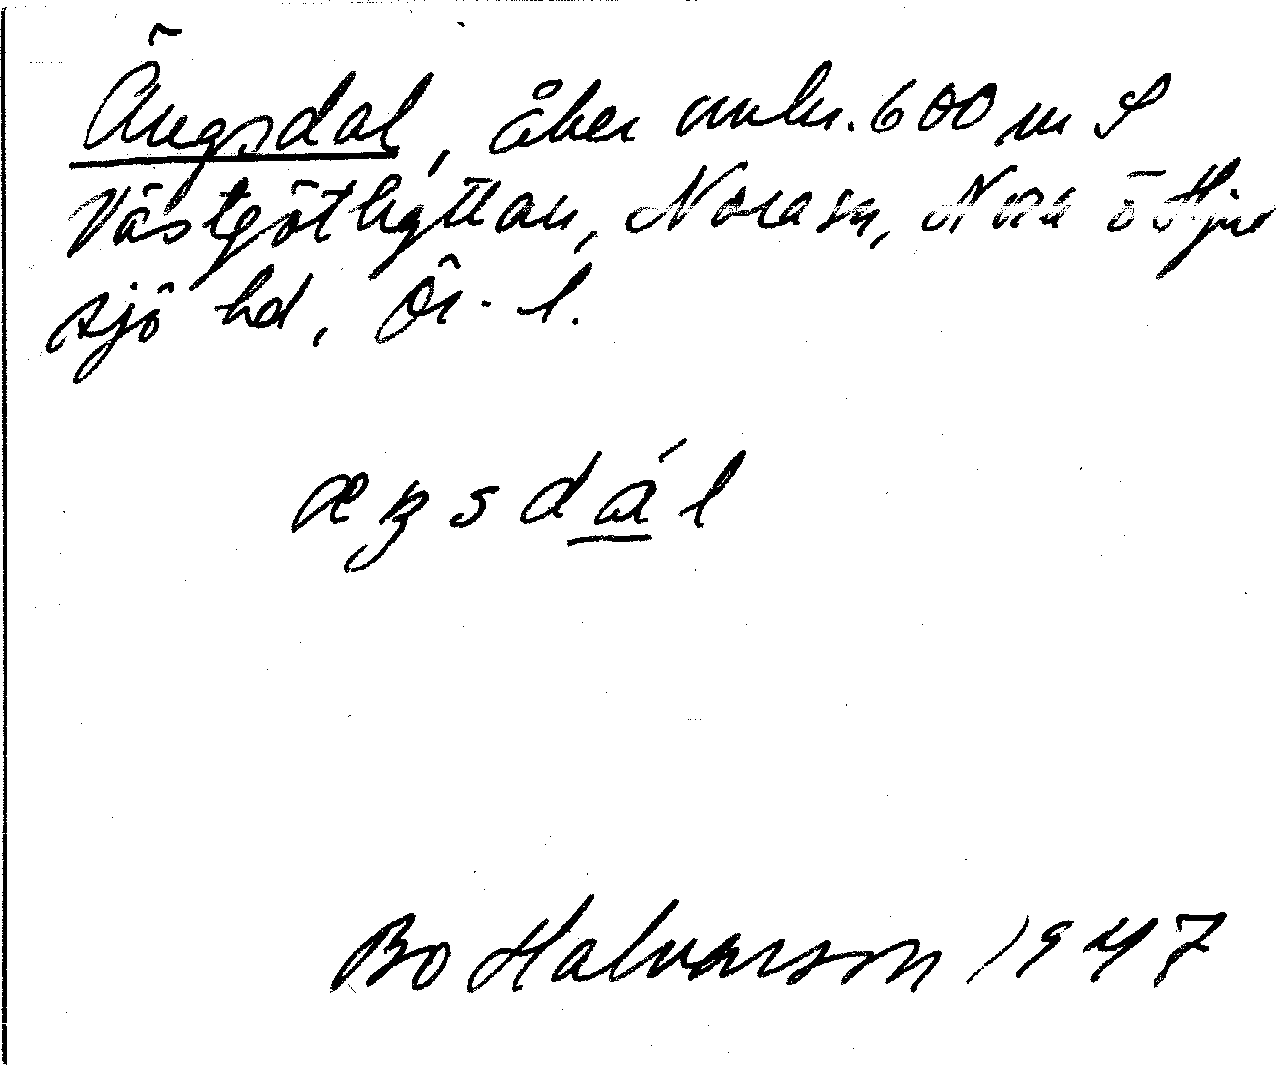 Ängsdal, åker omkr. 600 m S
Västgöthyttan, Nora sn, Nora o Hjul
sjö hd, Ör. l.
æŋsdál
Bo Halvarson 1947